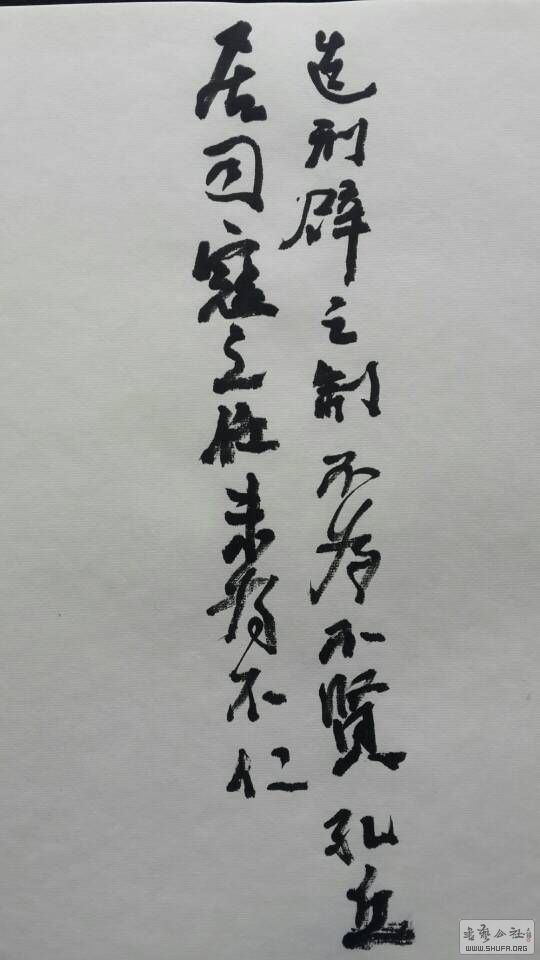 造刑辟之制不為不贤孔丘
居司寇之任未為不仁
书艺公社
WWW.SHUFA.ORG